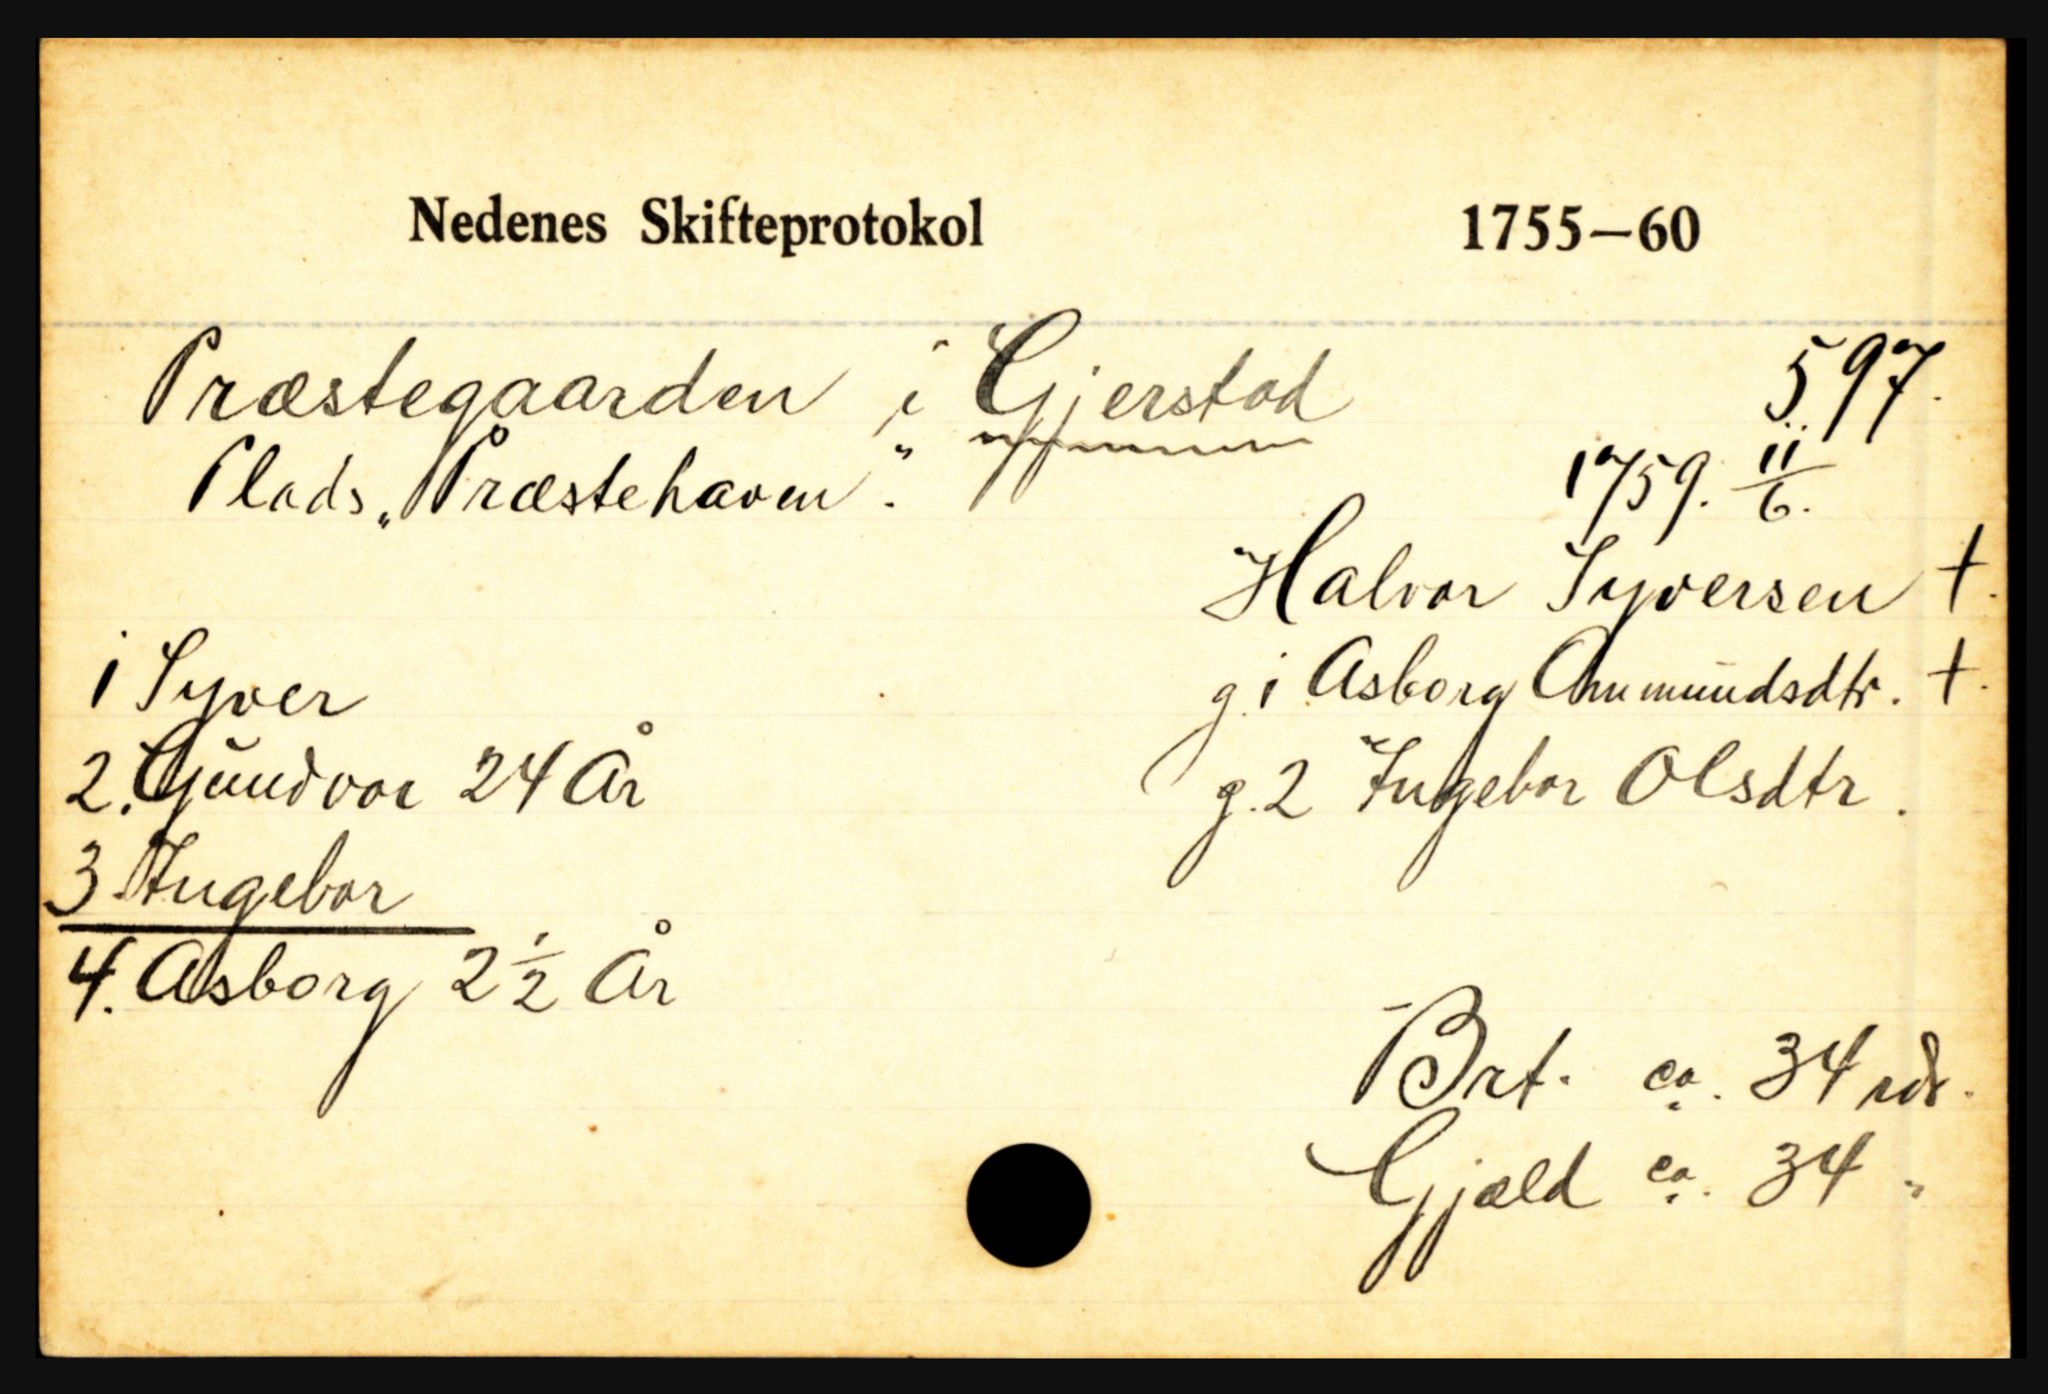 Nedenes Skifteprotokol 1755—60
Præstegaarden i Gjerstad 597.
Plads „Præstehaven". 1759. 11/6.
Halvor Syversen †.
1 Syver g.1 Asborg Ammundsdtr. †.
2. Gundvor 24 År g.2 Ingebor Olsdtr.
3. Ingebor
4. Asborg 2 1/2 År
Brt. ca. 34 rdr.
Gjæld ca. 34 "